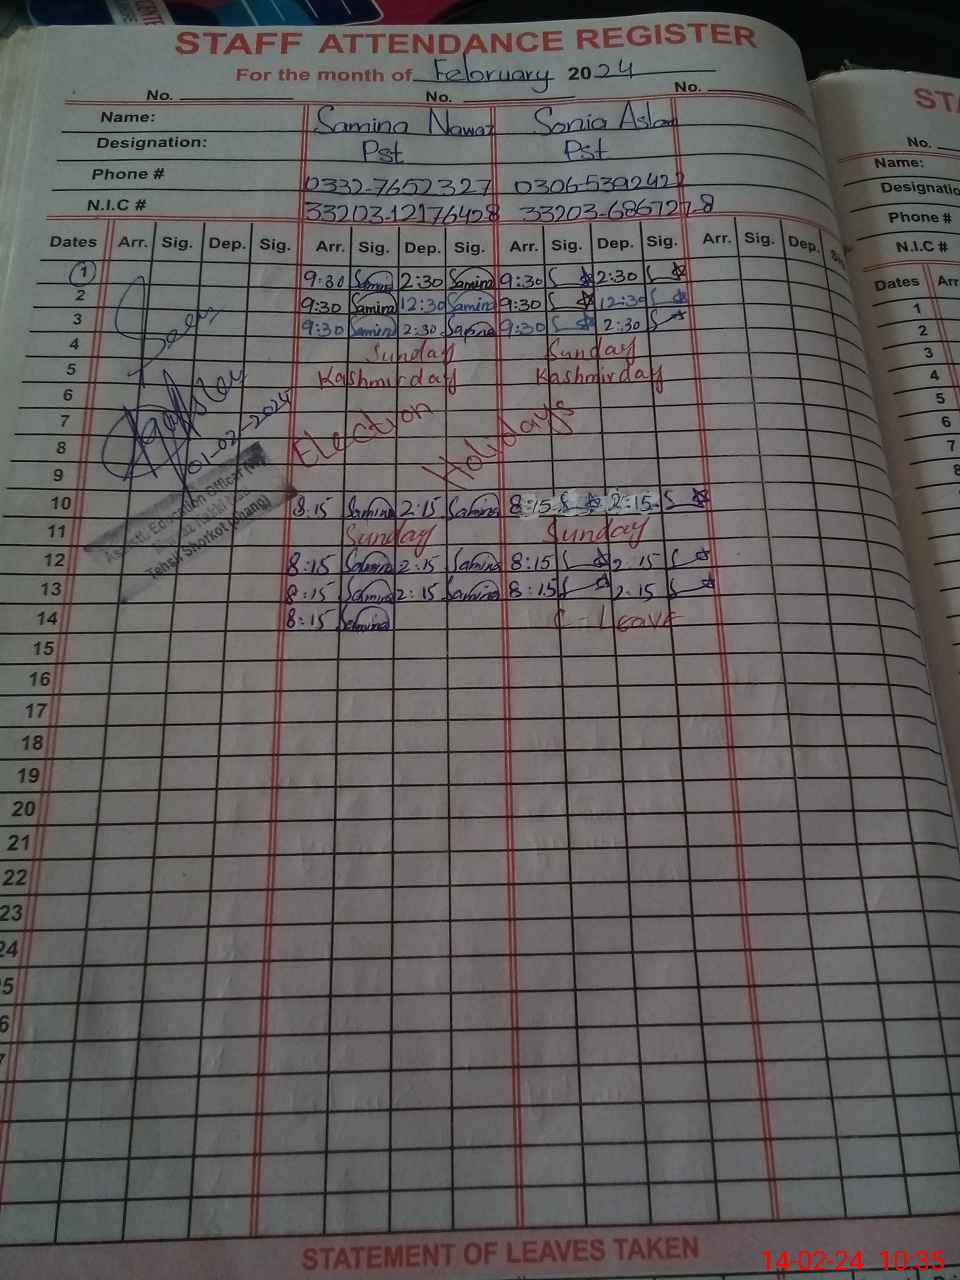 STAFF ATTENDANCE REGISTER
For the month of February 2024
No. No. No.
Name: Samina Nawaz Sonia Aslam
Designation: Pst Pst
Phone # 0332-7652327 0306-5392422
N.I.C # 33203-12176428 33203-686727-8
Dates Arr. Sig. Dep. Sig. Arr. Sig. Dep. Sig. Arr. Sig. Dep. Sig. Arr. Sig. Dep. Sig.
1 9:30 Samina 2:30 Samina 9:30 2:30
2 9:30 Samina 12:30 Samina 9:30 12:30
3 9:30 Samina 2:30 Samina 9:30 2:30
4 Sunday Sunday
5 Kashmirday Kashmirday
6
7 Election Holidays
8
9
01-02-2024
Assistt. Education Officer
Tehsil Shorkot (Jhang)
10 8:15 Samina 2:15 Samina 8:15 2:15
11 Sunday Sunday
12 8:15 Samina 2:15 Samina 8:15 2:15
13 8:15 Samina 2:15 Samina 8:15 2:15
14 8:15 Samina C-Leave
15
16
17
18
19
20
21
22
23
24
5
6
7
STATEMENT OF LEAVES TAKEN
ST
No.
Name:
Designatio
Phone #
N.I.C #
Dates Arr
1
2
3
4
5
6
7
8
14-02-24 10:35